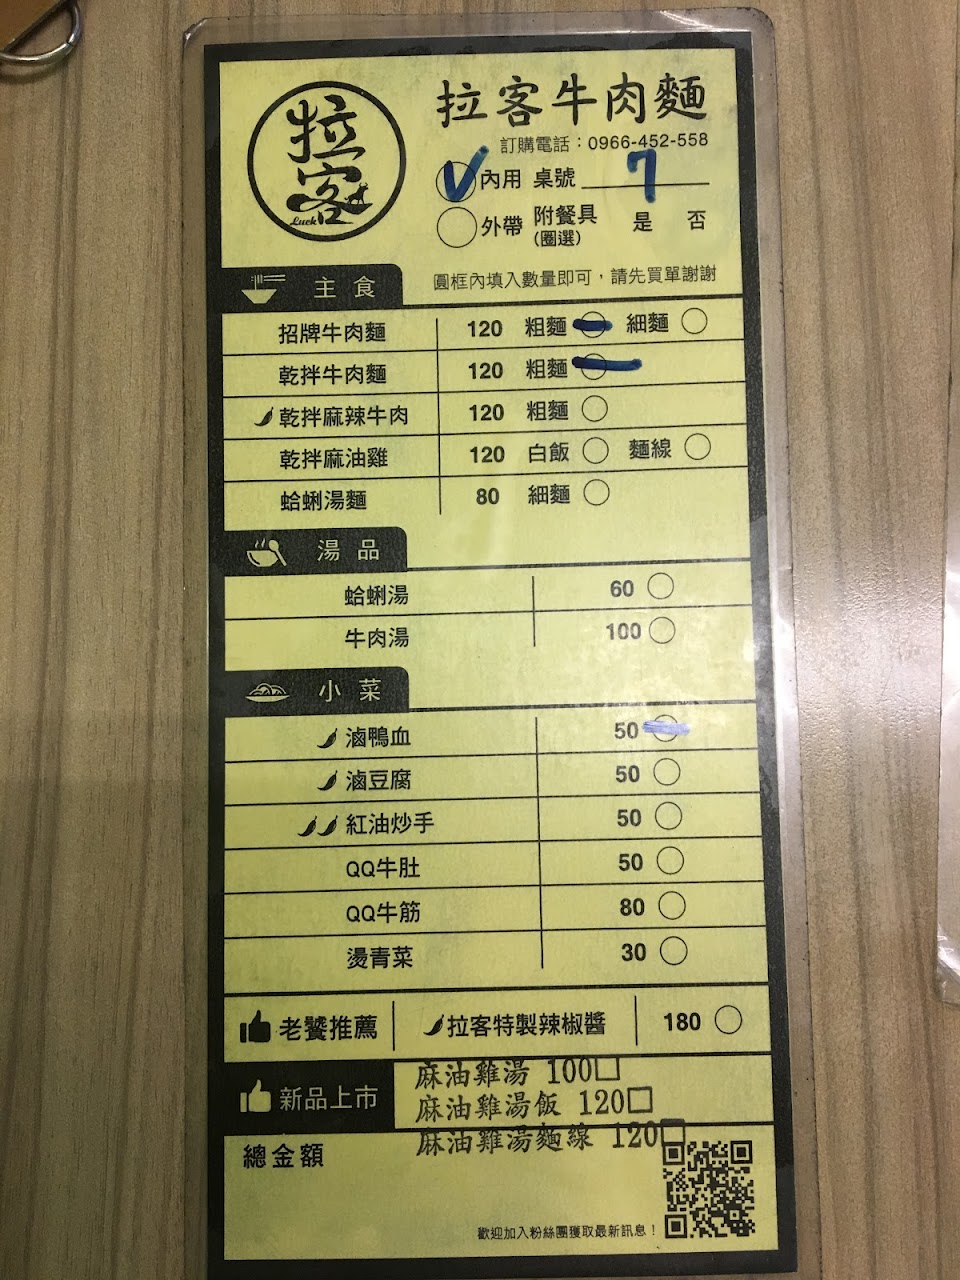 拉客
Luck
拉客牛肉麵
訂購電話：0966-452-558
V 內用 桌號 7
外帶 附餐具 是 否
(圈選)
主食
圓框內填入數量即可，請先買單謝謝
招牌牛肉麵 120 粗麵 細麵
乾拌牛肉麵 120 粗麵
乾拌麻辣牛肉 120 粗麵
乾拌麻油雞 120 白飯 麵線
蛤蜊湯麵 80 細麵
湯品
蛤蜊湯 60
牛肉湯 100
小菜
滷鴨血 50
滷豆腐 50
紅油炒手 50
QQ牛肚 50
QQ牛筋 80
燙青菜 30
老饕推薦 拉客特製辣椒醬 180
新品上市
麻油雞湯 100□
麻油雞湯飯 120□
麻油雞湯麵線 120□
總金額
歡迎加入粉絲團獲取最新訊息！